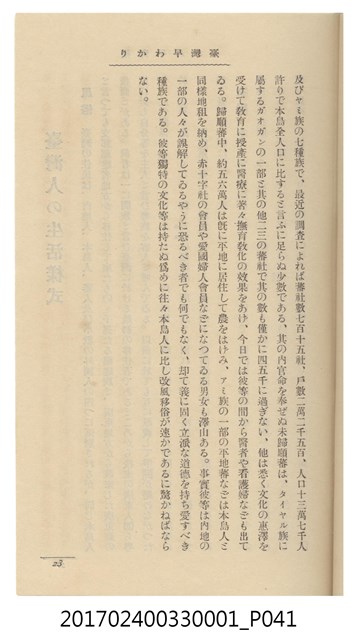 臺灣早わかり
及びヤミ族の七種族で、最近の調査によれば蕃社數七百十五社、戸數二萬二千五百、人口十三萬七千人
許りで本島全人口に比すると言ふに足らぬ少數である、其の内官命を奉ぜぬ未歸順蕃は、タイヤル族に
屬するガオガンの一部と其の他二三の蕃社で其の數も僅かに四五千に過ぎない、他は悉く文化の惠澤を
受けて敎育に授產に醫療に著々撫育敎化の效果をあげ、今日では彼等の間から醫者や看護婦なども出て
ゐる。歸順蕃中、約五六萬人は旣に平地に居住して農をはげみ、アミ族の一部の平地蕃などは本島人と
同樣地租を納め、赤十字社の會員や愛國婦人會員などになつてゐる男女も澤山ある。事實彼等は內地の
一部の人々が誤解してゐるやうに恐るべき者でも何でもなく、却て義に固く立派な道德を持ち愛すべき
種族である。彼等獨特の文化等は持たぬ爲めに往々本島人に比し改風移俗が速かであるに驚かねばなら
ない。
23
201702400330001_P041